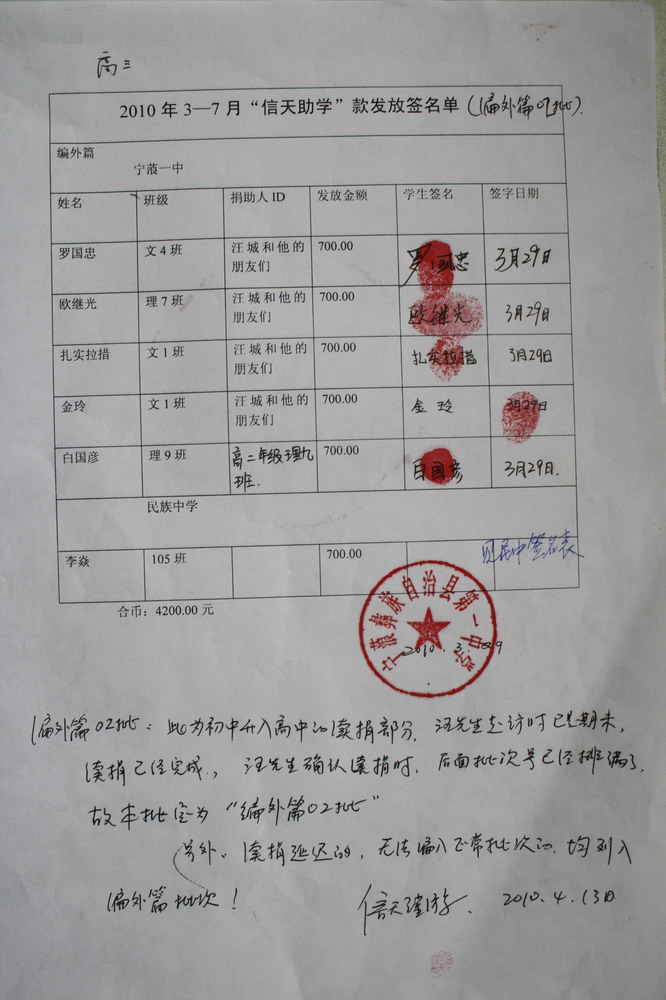 高三
2010 年 3—7 月 “信天助学” 款发放签名单 (编外篇02批).
编外篇
宁蒗一中
姓名 班级 捐助人 ID 发放金额 学生签名 签字日期
罗国忠 文 4 班 汪城和他的朋友们 700.00 罗国忠 3月29日
欧继光 理 7 班 汪城和他的朋友们 700.00 欧继光 3月29日
扎实拉措 文 1 班 汪城和他的朋友们 700.00 扎实拉措 3月29日
金玲 文 1 班 汪城和他的朋友们 700.00 金玲 3月29日
白国彦 理 9 班 高二年级理九班. 700.00 白国彦 3月29日.
民族中学
李焱 105 班 700.00 见民中签名表
合币：4200.00 元
宁蒗彝族自治县第一中学
2010.3.29
编外篇02批：此为初中升入高中的续捐部分. 汪先生走访时已是期末,
续捐已经完成., 汪先生确认续捐时, 后面批次号已经排编了.
故本批定为“编外篇02批”
另外. 续捐延迟的, 无法编入正常批次的. 均列入
编外篇批次！ 信天谨游. 2010.4.13日